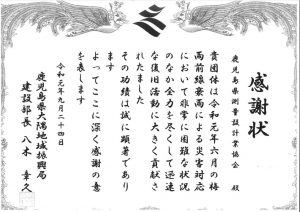 感謝状
鹿児島県測量設計業協会 殿
貴団体は令和元年六月の梅
雨前線豪雨による災害対応
において非常に困難な状況
のなか全力を尽くして迅速
な復旧活動に大きく貢献さ
れました
その功績は誠に顕著であり
ます
よってここに深く感謝の意
を表します
令和元年九月二十四日
鹿児島県大隅地域振興局
建設部長 八木 幸久